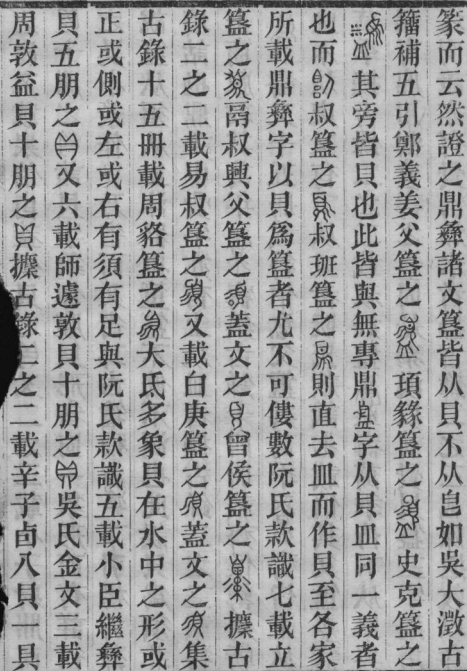 篆而云然證之鼎彝諸文簋皆从貝不从皀如吳大澂古
籀補五引鄭義姜父簋之項㺇簋之史克簋之
其旁皆貝也此皆與無專鼎字从貝皿同一義者
也而叔簋之叔班簋之則直去皿而作貝至各家
所載鼎彝字以貝爲簋者尤不可僂數阮氏款識七載立
簋之鬲叔興父簋之蓋文之曾侯簋之攈古
錄二之二載易叔簋之又載白庚簋之蓋文之集
古錄十五冊載周貉簋之大氐多象貝在水中之形或
正或側或左或右有須有足與阮氏款識五載小臣繼彝
貝五朋之又六載師遽敦貝十朋之吳氏金文三載
周敦益貝十朋之攈古錄二之二載辛子卣八貝一具